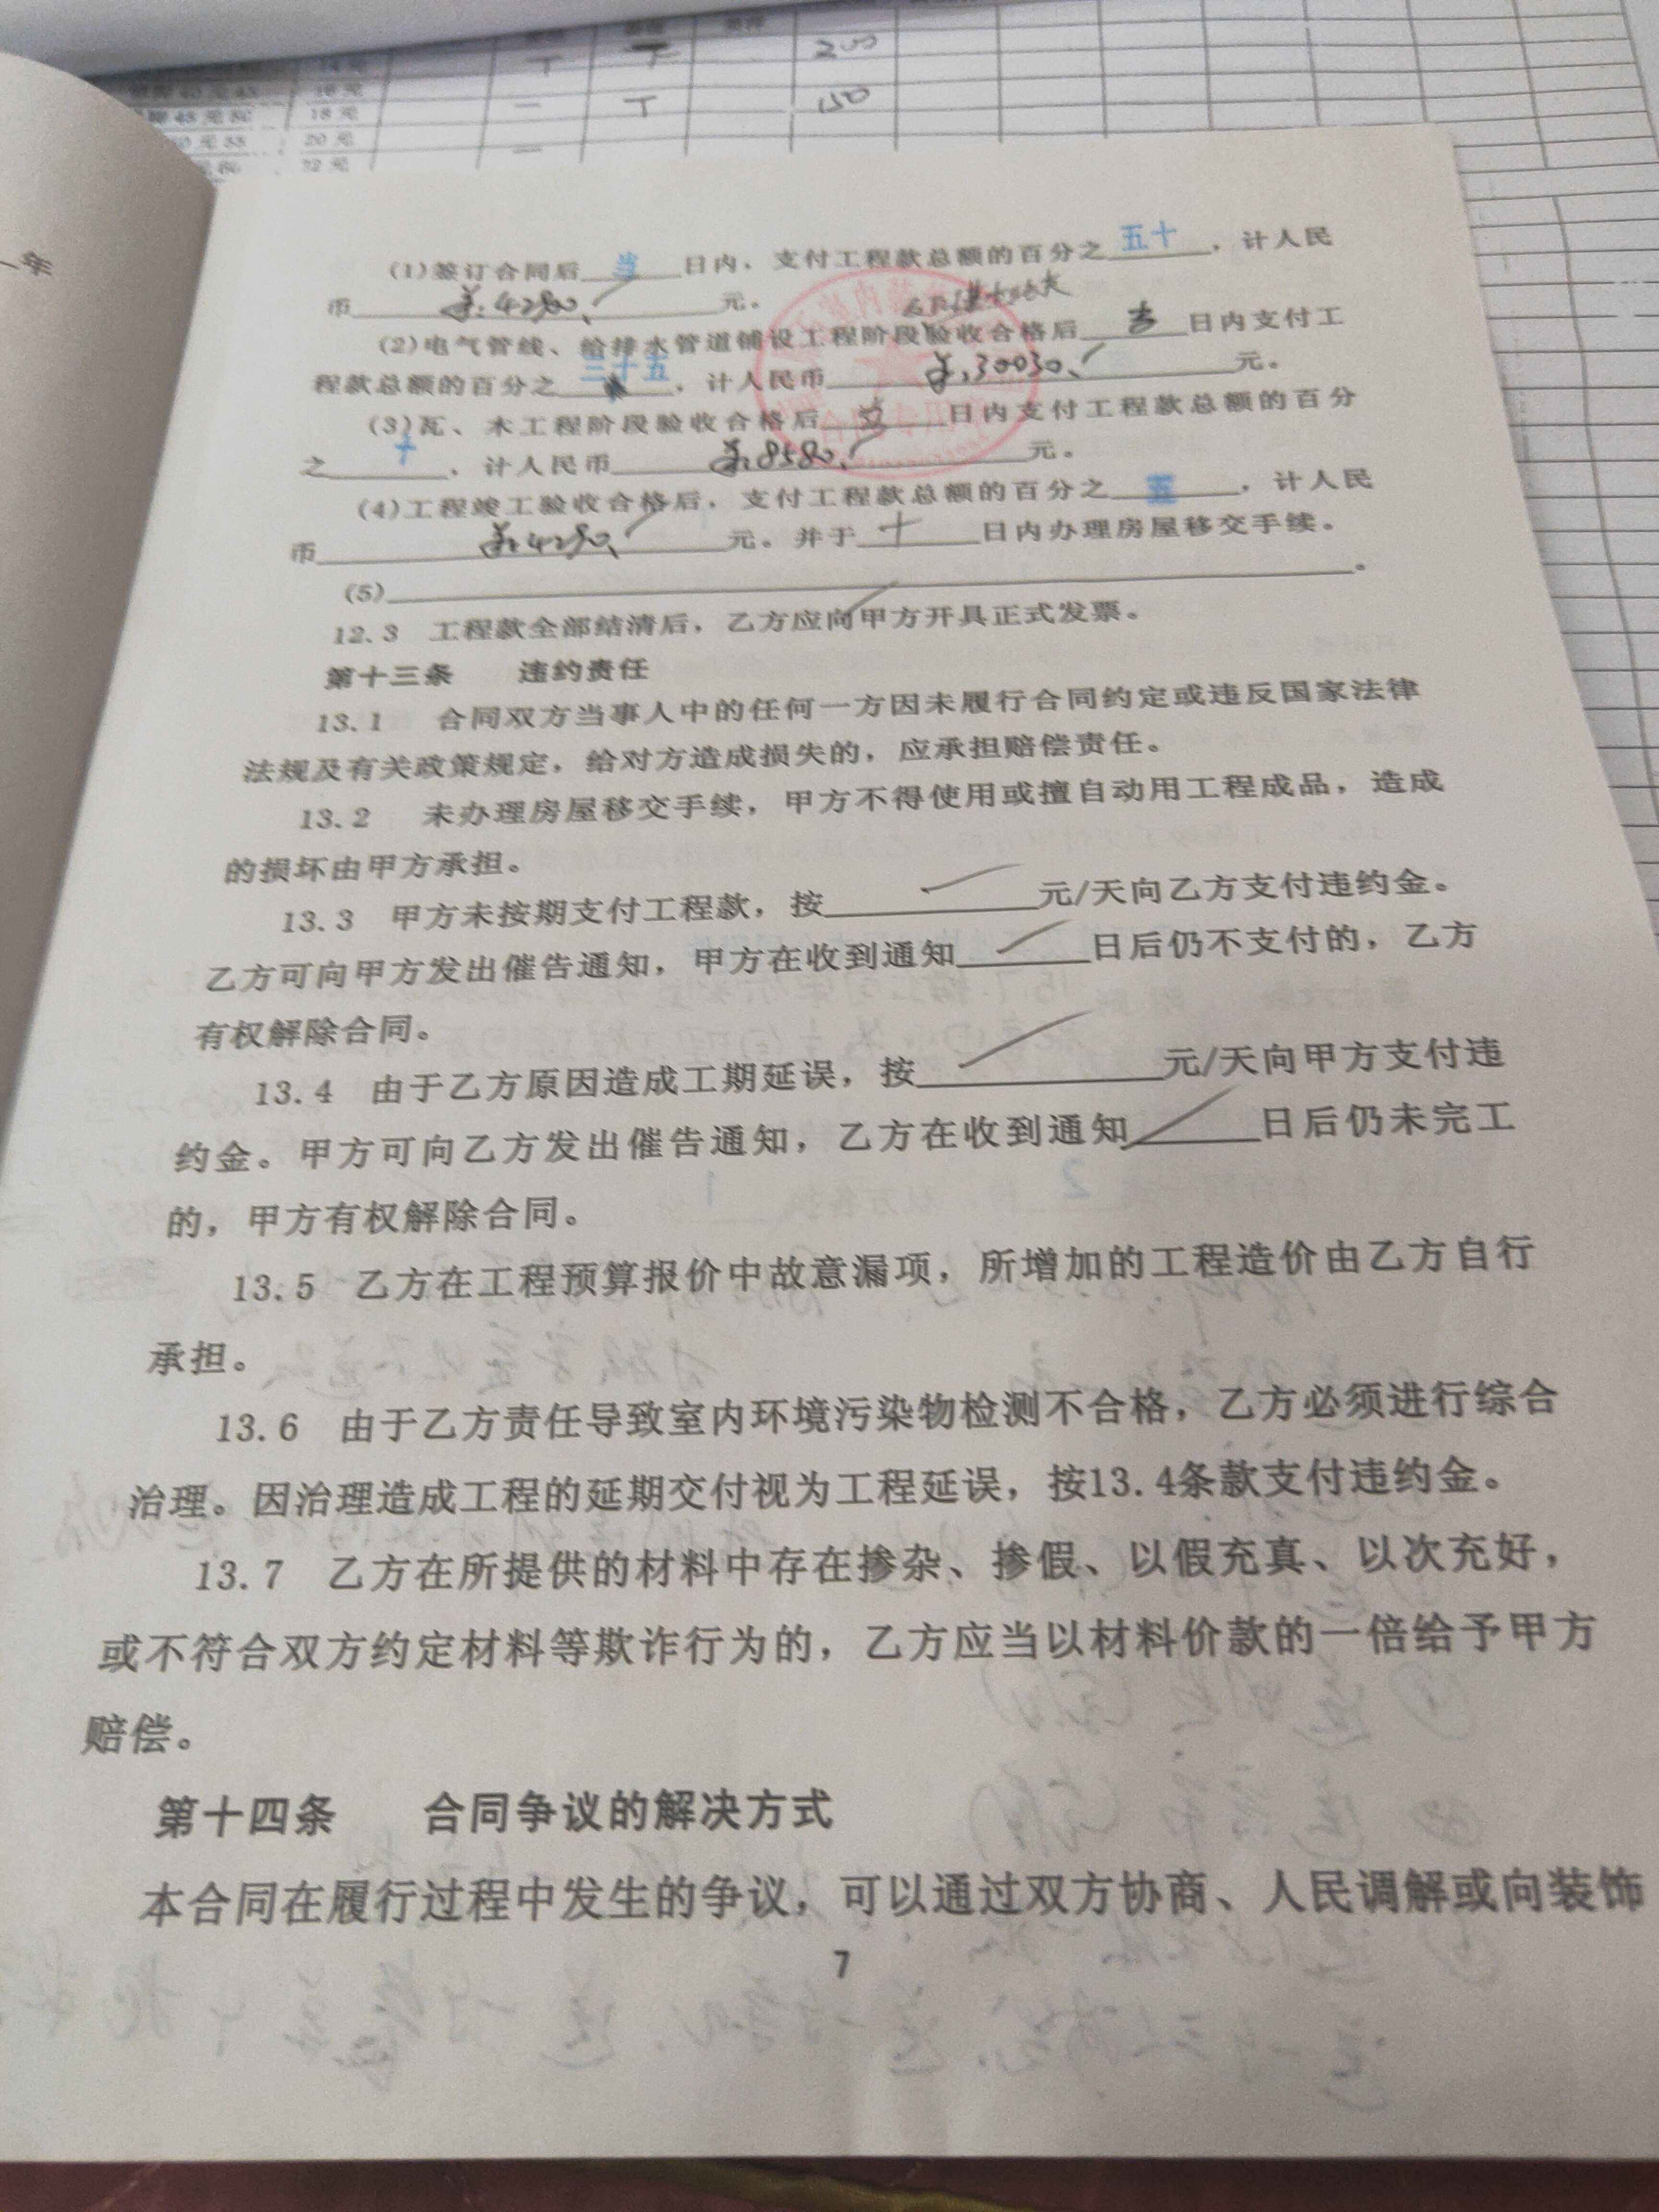 200
150
18 元
20 元
一年
(1)签订合同后 当 日内，支付工程款总额的百分之 五十 ，计人民
币 元。
(2)电气管线、给排水管道铺设工程阶段验收合格后 日内支付工
程款总额的百分之 三十五 ，计人民币 ¥:30030. 元。
(3)瓦、木工程阶段验收合格后 日内支付工程款总额的百分
之 十 ，计人民币 ¥:8580. 元。
(4)工程竣工验收合格后，支付工程款总额的百分之 五 ，计人民
币 ¥:4290. 元。并于 十 日内办理房屋移交手续。
(5) 。
12.3 工程款全部结清后，乙方应向甲方开具正式发票。
第十三条 违约责任
13.1 合同双方当事人中的任何一方因未履行合同约定或违反国家法律
法规及有关政策规定，给对方造成损失的，应承担赔偿责任。
13.2 未办理房屋移交手续，甲方不得使用或擅自动用工程成品，造成
的损坏由甲方承担。
13.3 甲方未按期支付工程款，按 元/天向乙方支付违约金。
乙方可向甲方发出催告通知，甲方在收到通知 日后仍不支付的，乙方
有权解除合同。
13.4 由于乙方原因造成工期延误，按 元/天向甲方支付违
约金。甲方可向乙方发出催告通知，乙方在收到通知 日后仍未完工
的，甲方有权解除合同。
13.5 乙方在工程预算报价中故意漏项，所增加的工程造价由乙方自行
承担。
13.6 由于乙方责任导致室内环境污染物检测不合格，乙方必须进行综合
治理。因治理造成工程的延期交付视为工程延误，按13.4条款支付违约金。
13.7 乙方在所提供的材料中存在掺杂、掺假、以假充真、以次充好，
或不符合双方约定材料等欺诈行为的，乙方应当以材料价款的一倍给予甲方
赔偿。
第十四条 合同争议的解决方式
本合同在履行过程中发生的争议，可以通过双方协商、人民调解或向装饰
7